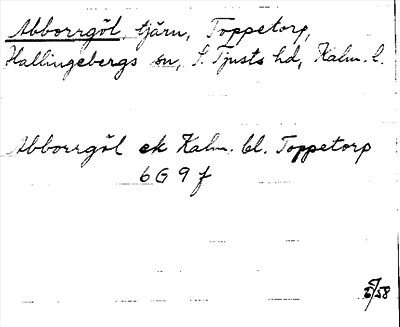 Abborrgöl, tjärn, Toppetorp,
Hallingebergs sn, S. Tjusts hd, Kalm. l.
Abborrgöl ek Kalm. bl. Toppetorp
6G 9f
/58